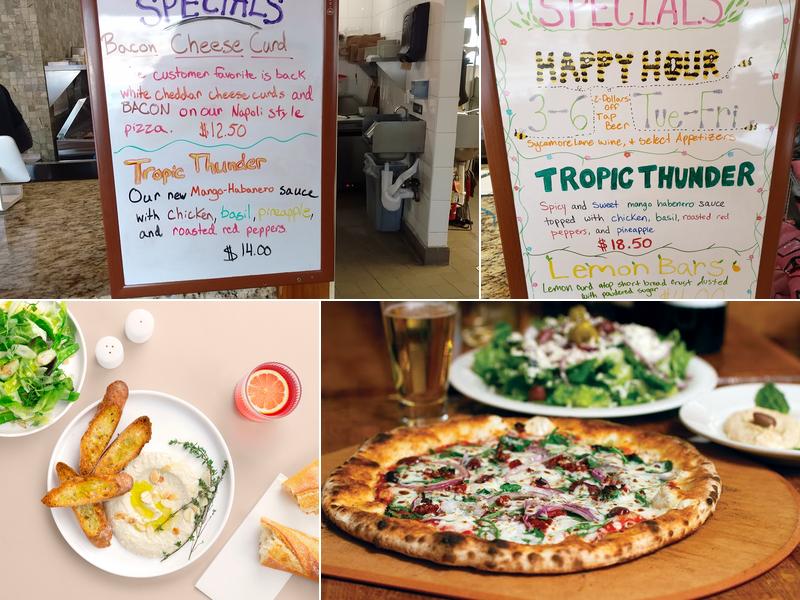 SPECIALS
Bacon Cheese Curd
customer favorite is back
white cheddar cheese curds and
BACON on our Napoli style
pizza. $12.50
Tropic Thunder
Our new Mango-Habanero sauce
with chicken, basil, pineapple,
and roasted red peppers
$14.00
SPECIALS
HAPPY HOUR
3-6 2-Dollars off Tap Beer Tue-Fri
Sycamore Lane wine, + Select Appetizers
TROPIC THUNDER
Spicy and Sweet mango habenero sauce
topped with chicken, basil, roasted red
peppers, and pineapple
$18.50
Lemon Bars
Lemon Curd atop short bread crust dusted
with powdered sugar